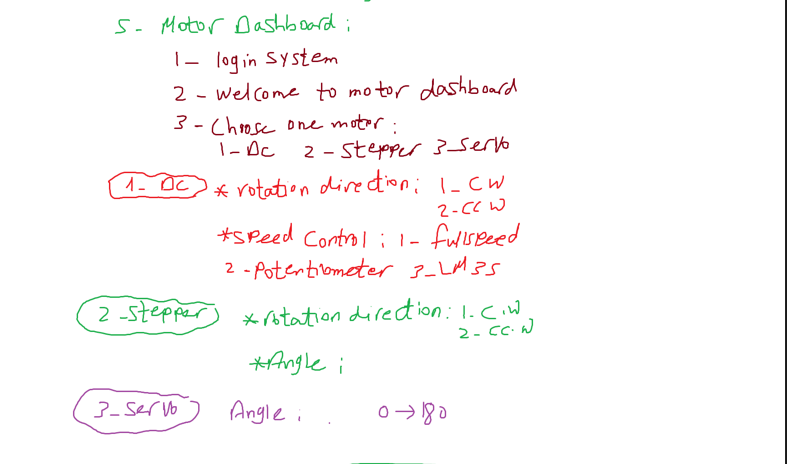 5- Motor Dashboard:
1- login system
2- welcome to motor dashboard
3- Choose one motor:
1-DC 2-Stepper 3-Servo
1- DC * rotation direction: 1- CW
2- CCW
*speed control: 1- fullspeed
2-Potentiometer 3-LM35
2-Stepper *rotation direction: 1- C.W
2- CC.W
*Angle:
3-Servo Angle: 0→180